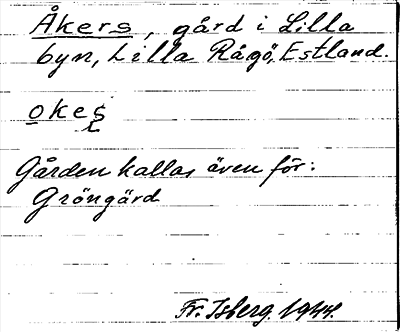 Åkers, gård i Lilla
byn, Lilla Rågö, Estland.
okes
Gården kallas även för:
Gröngärd
Fr. Isberg. 1944.